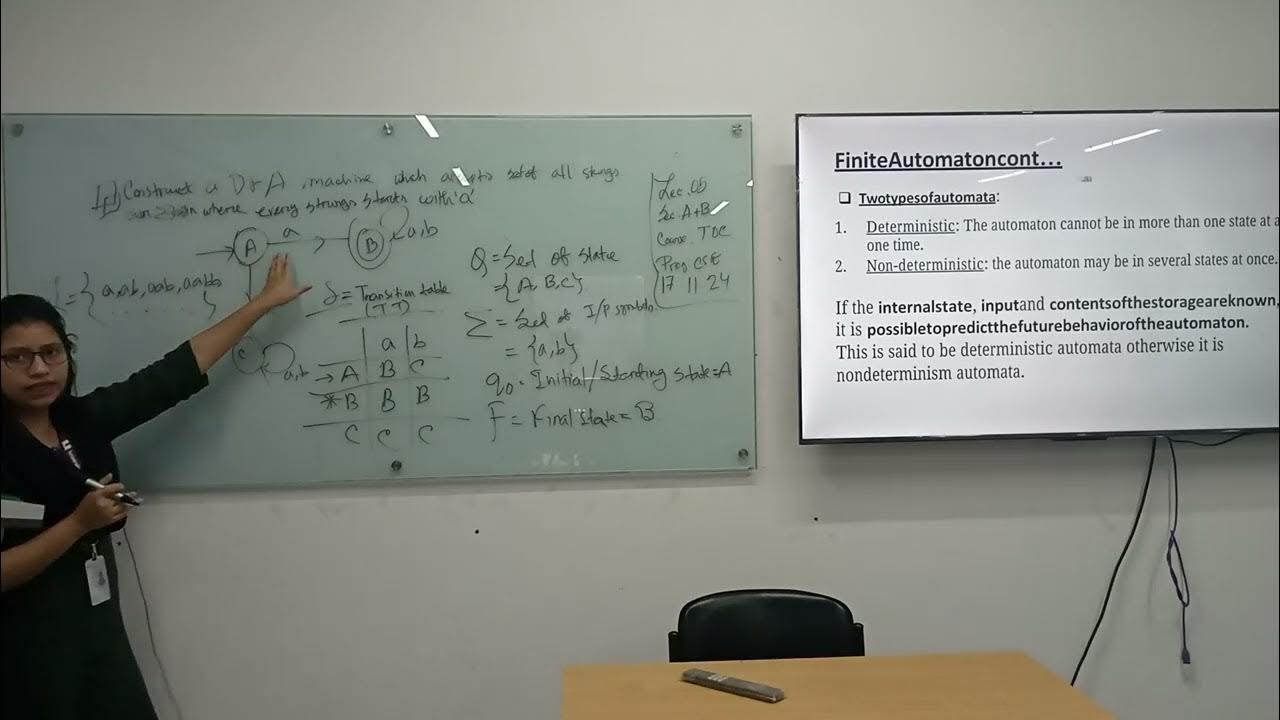 Construct a DFA machine which accepts set of all strings
over where every strings starts with 'a'
A a B a,b
= { a, ab, aab, aabb,
...... }
C a,b
δ = Transition table
(T.T)
a b
→ A B C
*B B B
C C C
Q = Sed of state
= {A, B, C}
Σ = Sed of I/P symbols
= {a,b}
q0 = Initial/Starting state = A
F = Final state = B
Lec. 05
Sec. A+B
Course. TOC
Prog CSE
17 11 24
FiniteAutomatoncont...
❑ Twotypesofautomata:
1. Deterministic: The automaton cannot be in more than one state at a
one time.
2. Non-deterministic: the automaton may be in several states at once.
If the internalstate, inputand contentsofthestorageareknown,
it is possibletopredictthefuturebehavioroftheautomaton.
This is said to be deterministic automata otherwise it is
nondeterminism automata.